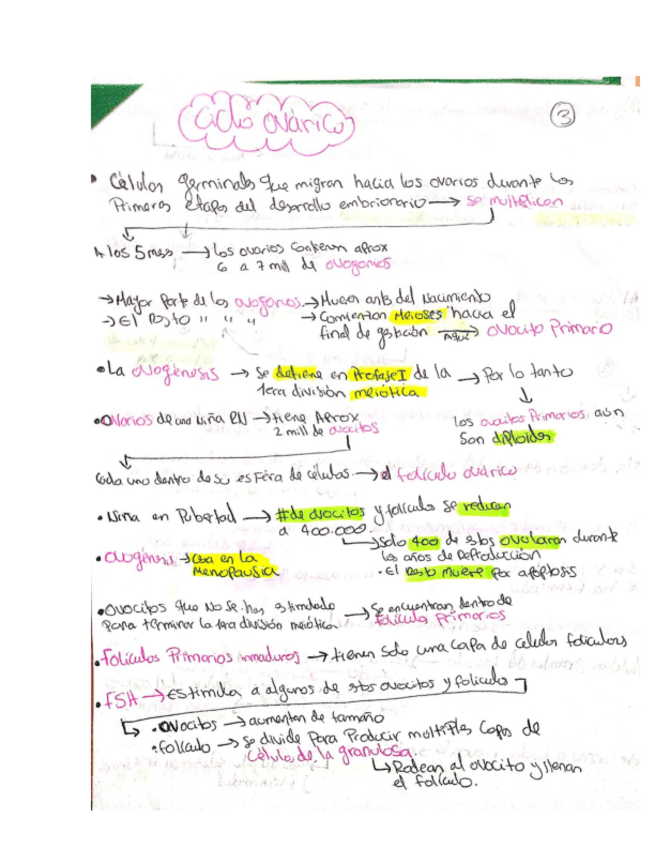 Ciclo ovárico
3
• Células germinales que migran hacia los ovarios durante las
Primeras etapas del desarrollo embrionario → se multiplican
A los 5 mess → los ovarios contienen aprox
6 a 7 mill de ovogonios
→ Mayor parte de los ovogonios → Mueren antes del Nacimiento
→ El Resto " " " → Comienzan Meioses hacia el
final de gestación Aquí → Ovocito Primario
• La ovogénesis → se detiene en Profase I de la → Por lo tanto
1era división meiótica
• Ovarios de una niña RN → tiene Aprox
2 mill de ovocitos
Los ovocitos Primarios aún
son diploides
Cada uno dentro de su esfera de células → el folículo ovárico
• Niña en Pubertad → # de ovocitos y folículos se reducen
a 400.000.
→ solo 400 de estos ovularan durante
los años de Reproducción
• El Resto muere por apóptosis
• Ovogénesis → Cesa en la
Menopausia
• Ovocitos que No se han estimulado
para terminar la 1era división meiótica → Se encuentran dentro de
folículos primarios
• Folículos Primarios inmaduros → tienen solo una capa de celulas foliculares
• FSH → Estimula a algunos de estos ovocitos y folículo
→ • Ovocitos → aumentan de tamaño
• folículo → se divide para Producir multiples capas de
Célula de la granulosa.
→ Rodean al ovocito y llenan
el folículo.